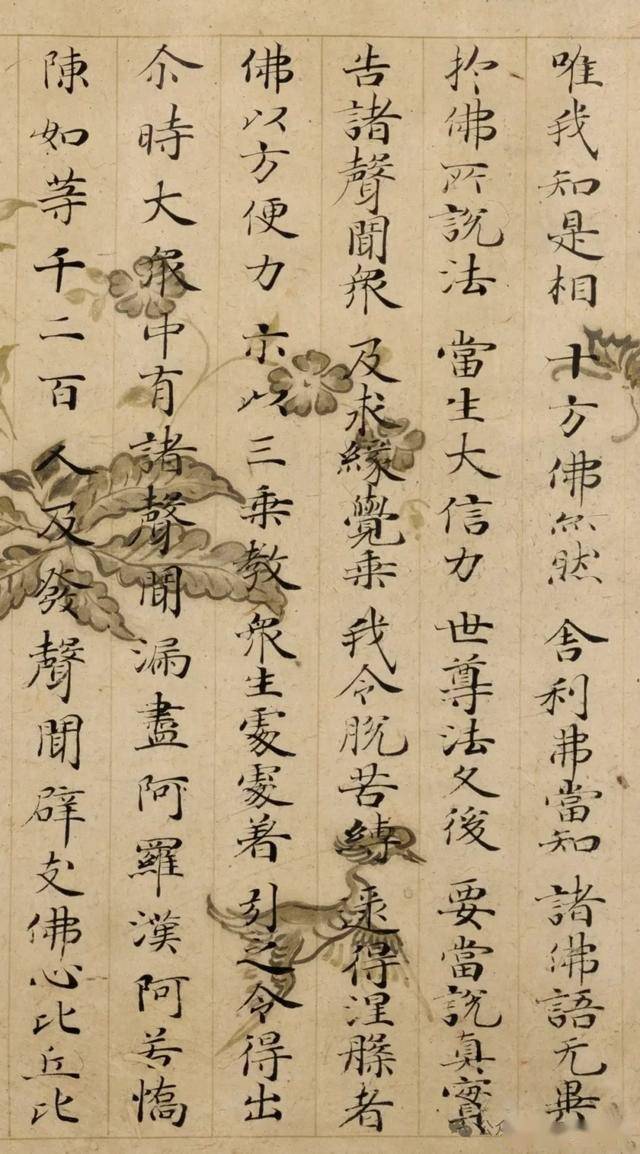 唯我知是相 十方佛亦然 舍利弗當知 諸佛語无異
扵佛所說法 當生大信力 世尊法久後 要當說真實
告諸聲聞衆 及求緣覺乘 我令脫苦縛 逮得涅槃者
佛以方便力 示以三乘教 衆生處處著 引之令得出
尒時大衆中有諸聲聞漏盡阿羅漢阿若憍
陳如等千二百人及發聲聞辟支佛心比丘比